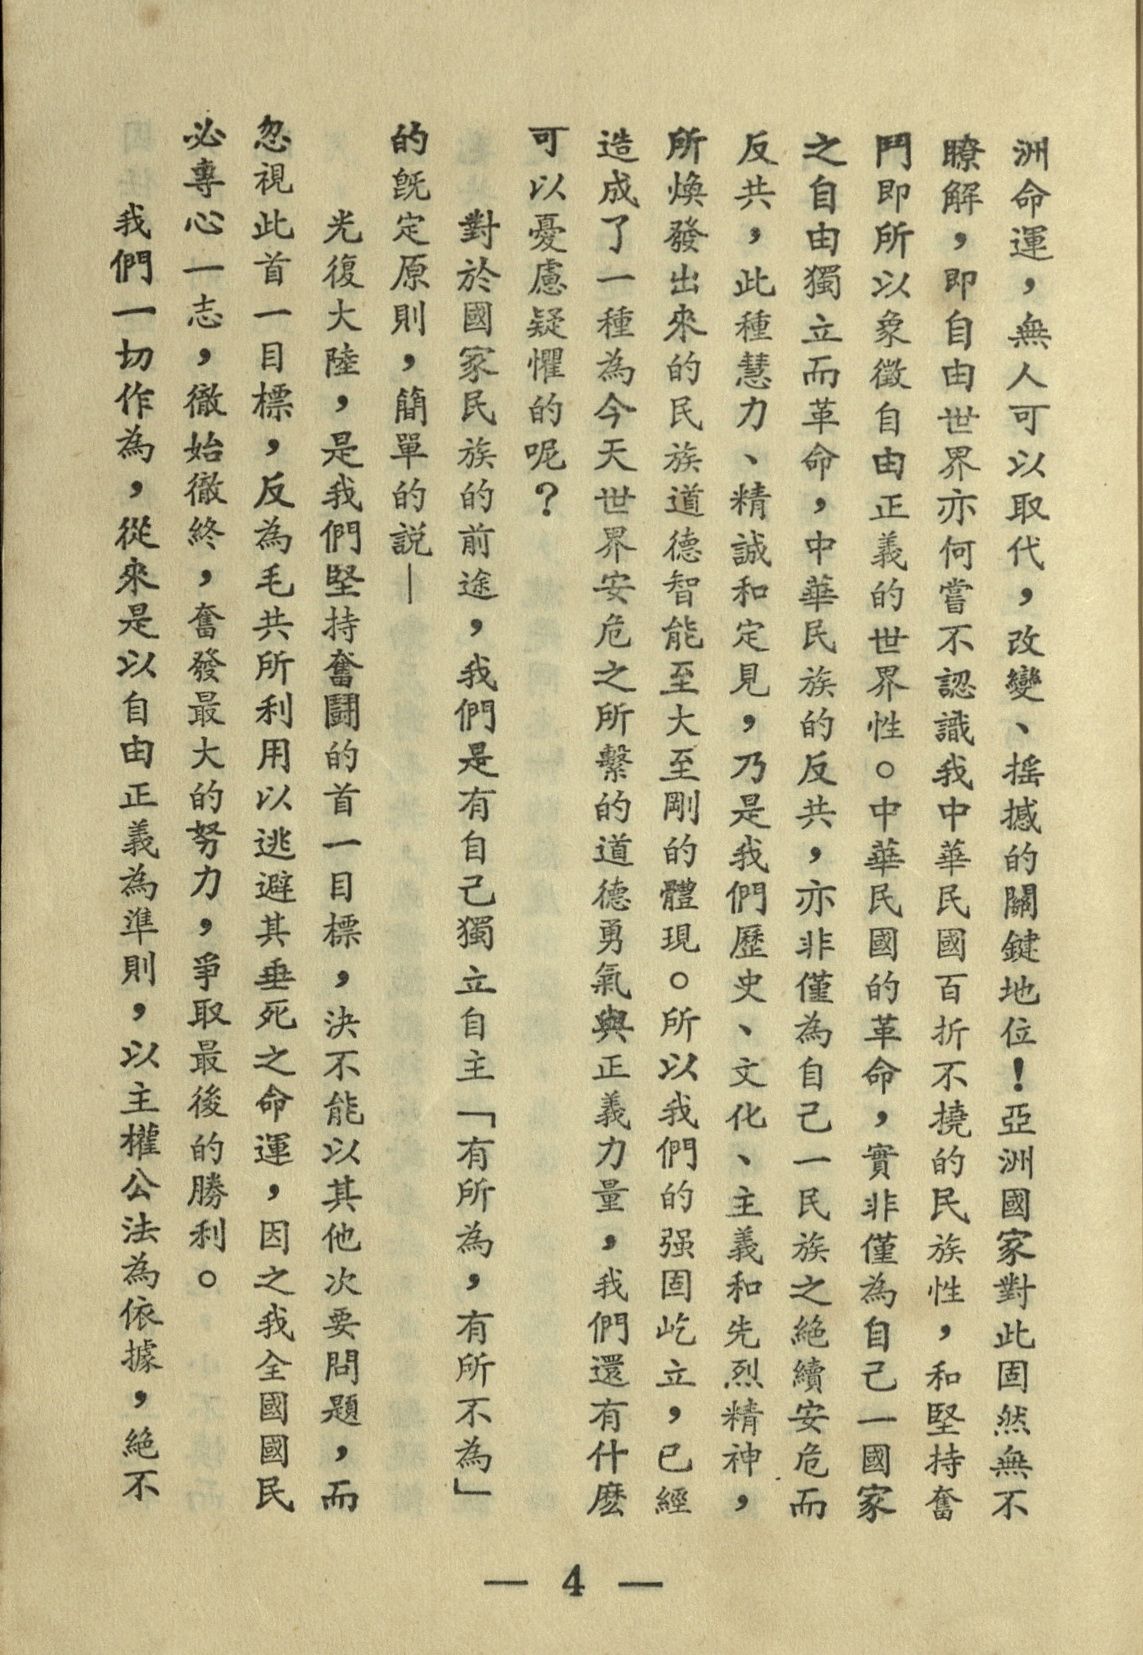 洲命運，無人可以取代，改變、搖撼的關鍵地位！亞洲國家對此固然無不
瞭解，即自由世界亦何嘗不認識我中華民國百折不撓的民族性，和堅持奮
鬥即所以象徵自由正義的世界性。中華民國的革命，實非僅為自己一國家
之自由獨立而革命，中華民族的反共，亦非僅為自己一民族之絕續安危而
反共，此種慧力、精誠和定見，乃是我們歷史、文化、主義和先烈精神，
所煥發出來的民族道德智能至大至剛的體現。所以我們的强固屹立，已經
造成了一種為今天世界安危之所繫的道德勇氣與正義力量，我們還有什麽
可以憂慮疑懼的呢？
對於國家民族的前途，我們是有自己獨立自主「有所為，有所不為」
的旣定原則，簡單的説—
光復大陸，是我們堅持奮鬪的首一目標，決不能以其他次要問題，而
忽視此首一目標，反為毛共所利用以逃避其垂死之命運，因之我全國國民
必專心一志，徹始徹終，奮發最大的努力，爭取最後的勝利。
我們一切作為，從來是以自由正義為準則，以主權公法為依據，絕不
— 4 —